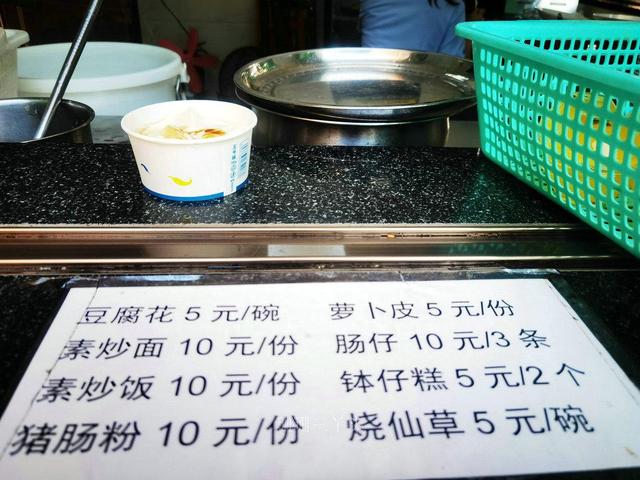 豆腐花 5 元/碗 萝卜皮 5 元/份
素炒面 10 元/份 肠仔 10 元/3 条
素炒饭 10 元/份 钵仔糕 5 元/2 个
猪肠粉 10 元/份 烧仙草 5 元/碗